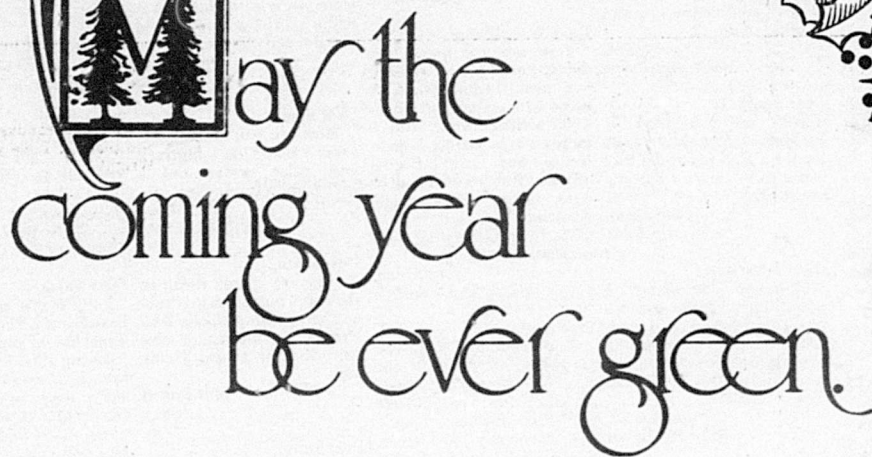 May the
coming year
be ever green.